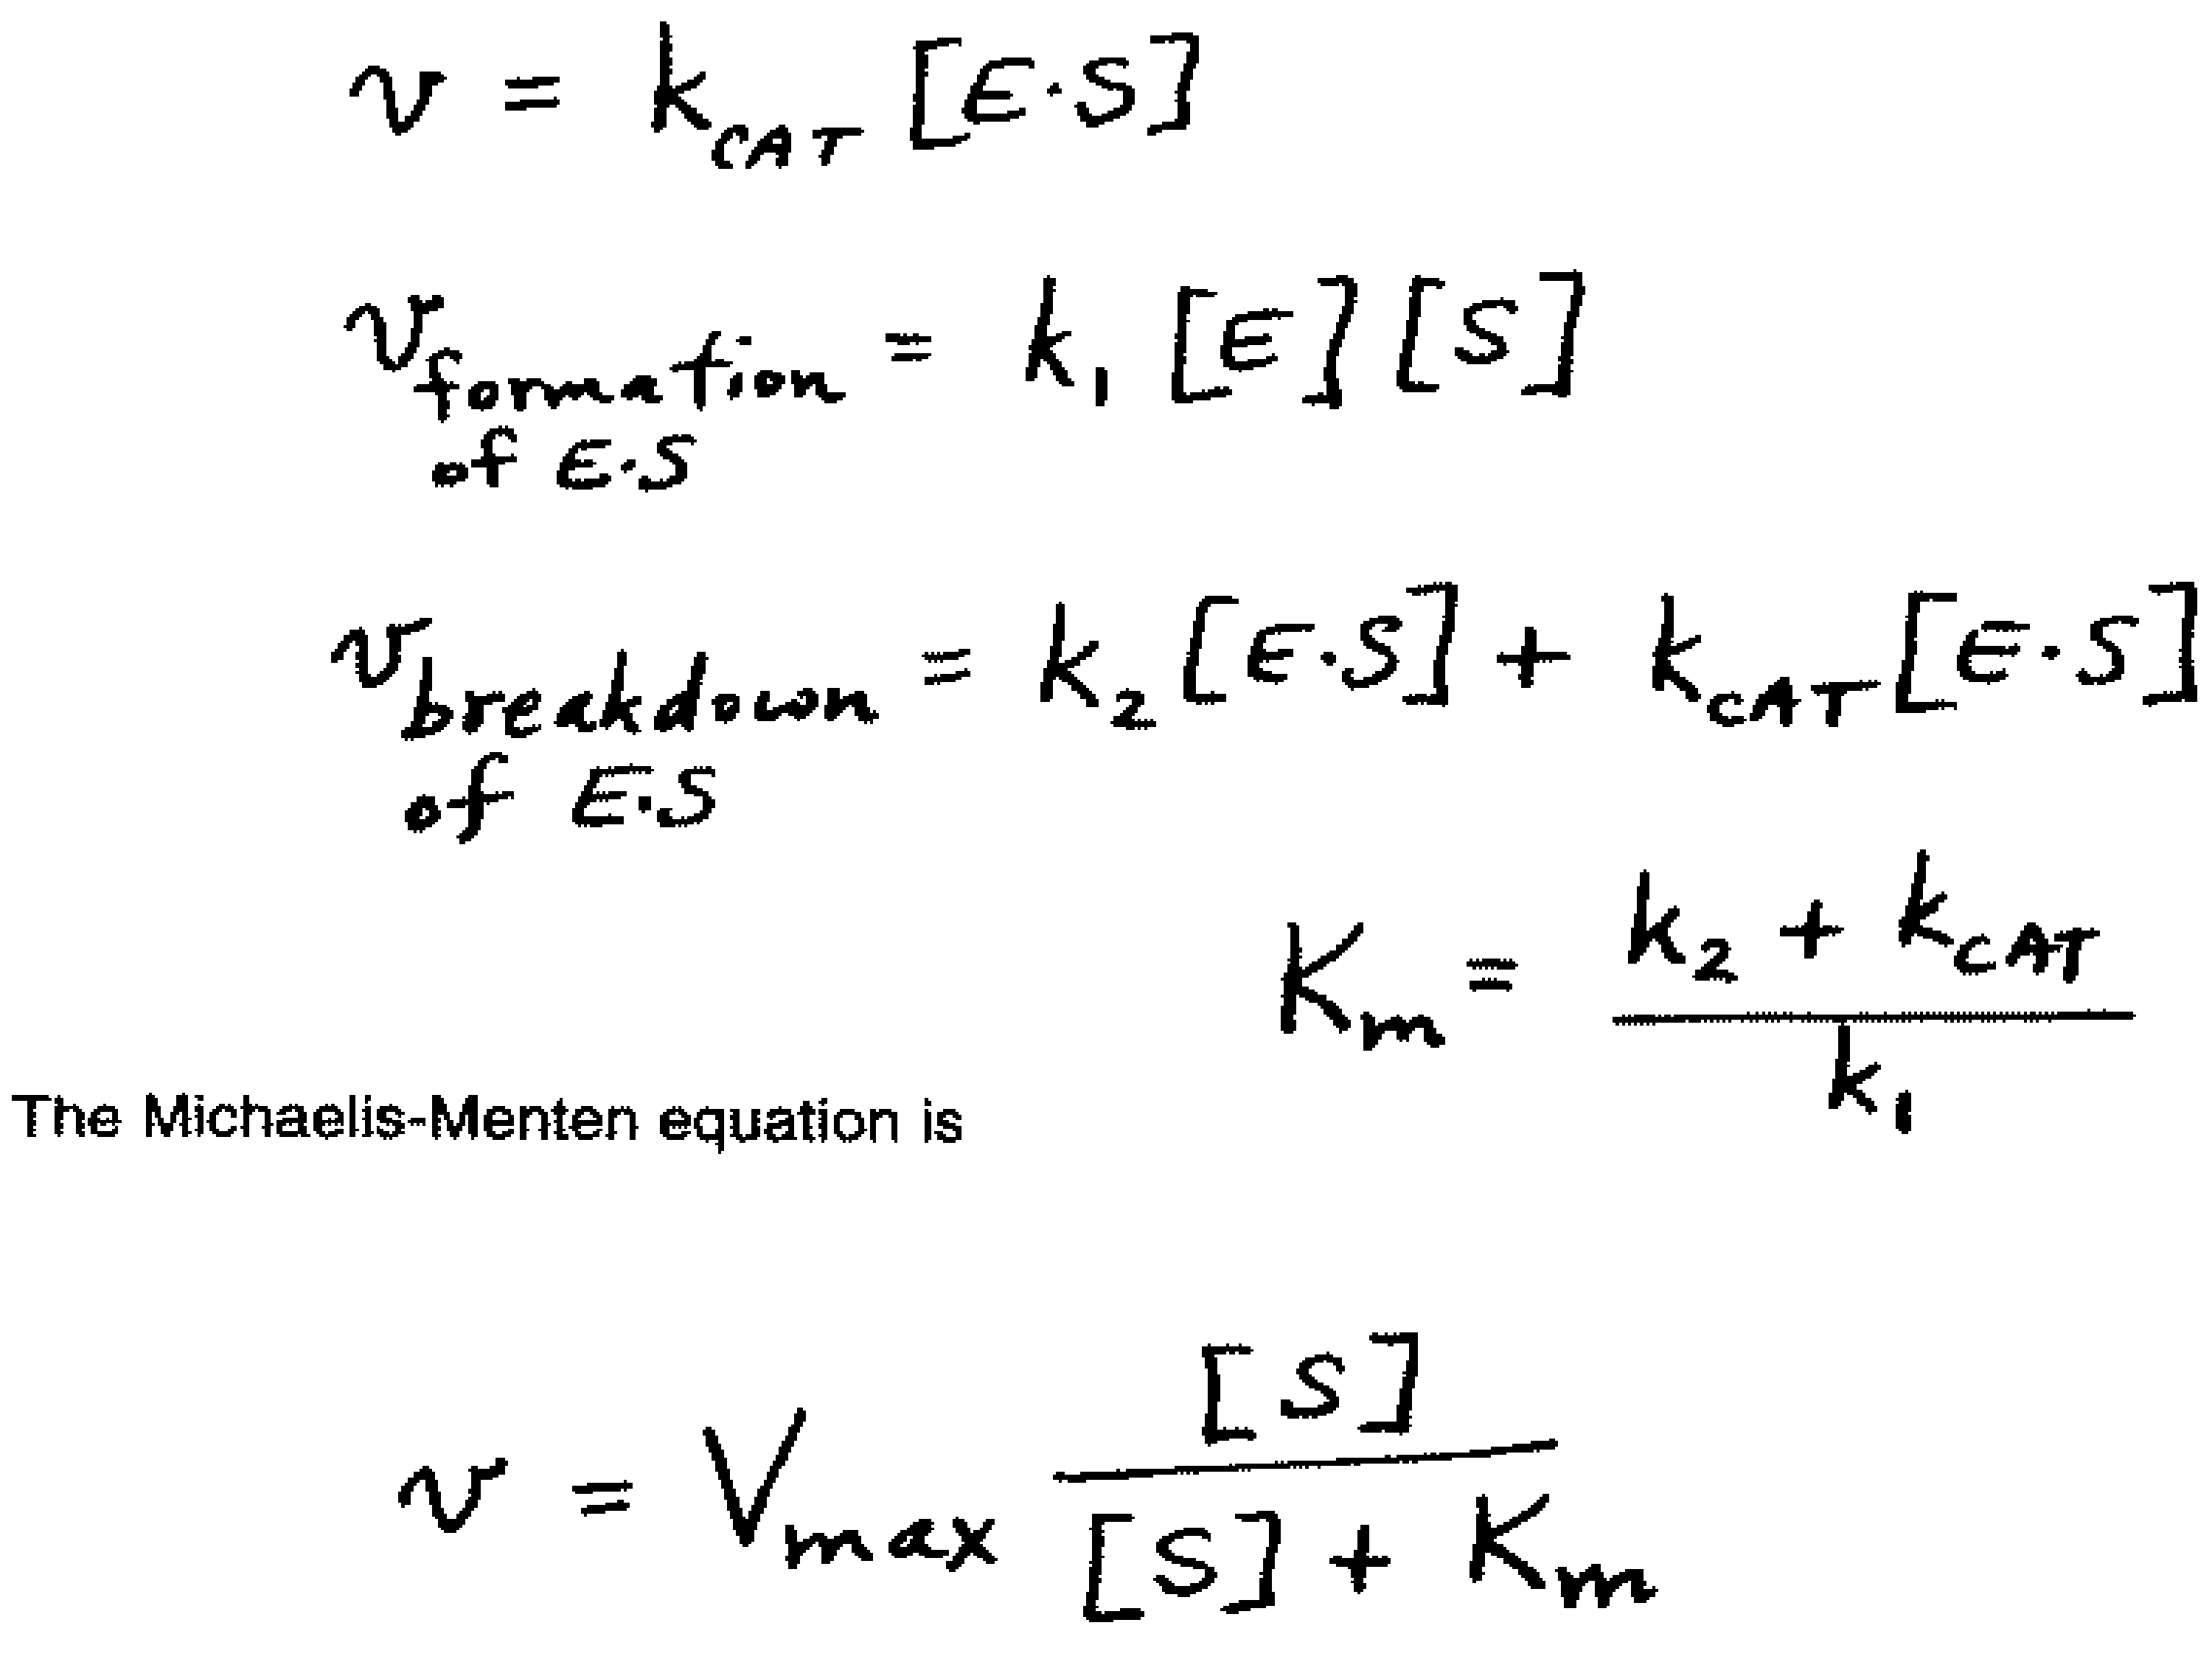 v = k_CAT [E·S]
v_formation of E·S = k_1 [E][S]
v_breakdown of E·S = k_2 [E·S] + k_CAT [E·S]
K_m = (k_2 + k_CAT) / k_1
The Michaelis-Menten equation is
v = V_max [S] / ([S] + K_m)